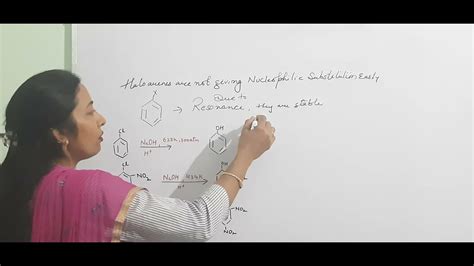 Haloarenes are not giving Nucleophilic Substitution Easily
X
Due to
→ Resonance, they are stable
Cl
NaOH, 623K, 300atm
H+
OH
Cl
NO2
NaOH, 443K
H+
OH
NO2
NO2